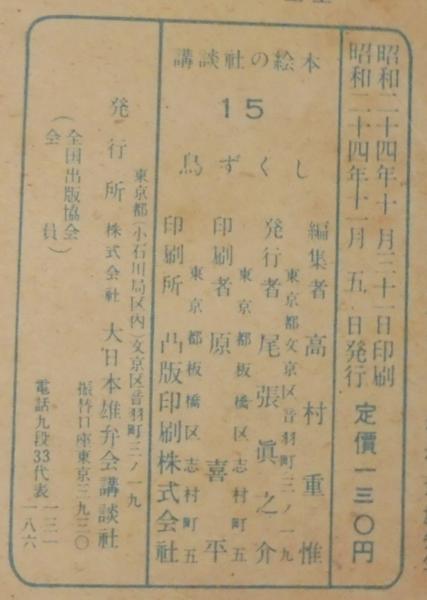 昭和二十四年十月三十一日印刷
昭和二十四年十一月五日発行
定價一三〇円
講談社の絵本
15
鳥ずくし
編集者 高村重惟
東京都文京区音羽町三ノ一九
発行者 尾張眞之介
東京都板橋区志村町五
印刷者 原喜平
東京都板橋区志村町五
印刷所 凸版印刷株式会社
東京都(小石川局区内)文京区音羽町三ノ一九
発行所 株式会社 大日本雄弁会講談社
振替口座東京三九三〇
電話九段33代表一三一
一八六
(全国出版協会
会員)